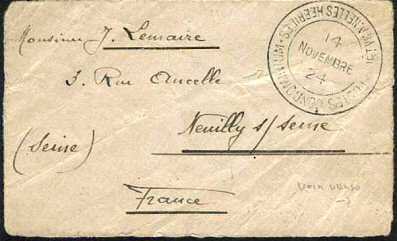 Monsieur J. Lemaire
3. Rue Ancelle
Neuilly s/Seine
(Seine)
France
14
NOVEMBRE
24
NOUVELLES HEBRIDES